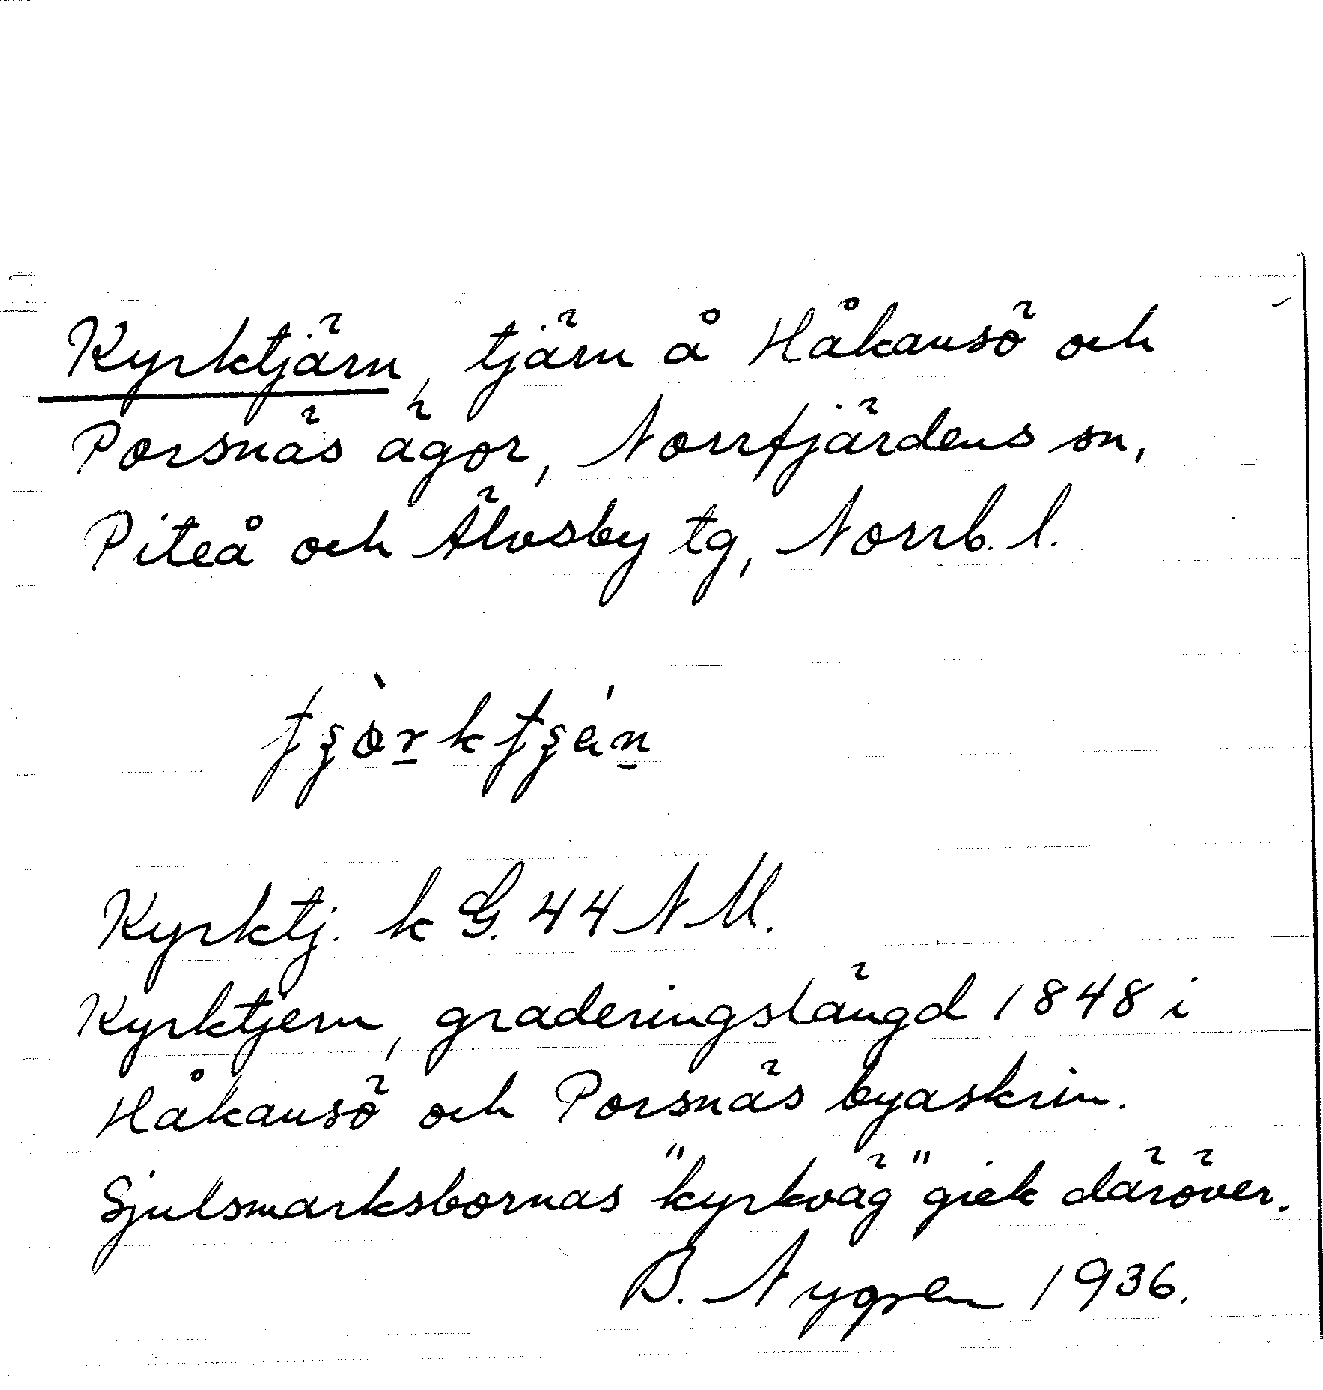 Kyrktjärn, tjärn å Håkansö och
Porsnäs ägor, Norrfjärdens sn,
Piteå och Älvsby tg, Norrb. l.
Kyrktj. k G. 44 NM.
Kyrktjern, graderingslängd 1848 i
Håkansö och Porsnäs byaskrin.
Sjulsmarksbornas "kyrkväg" gick däröver.
B. Nygren 1936.